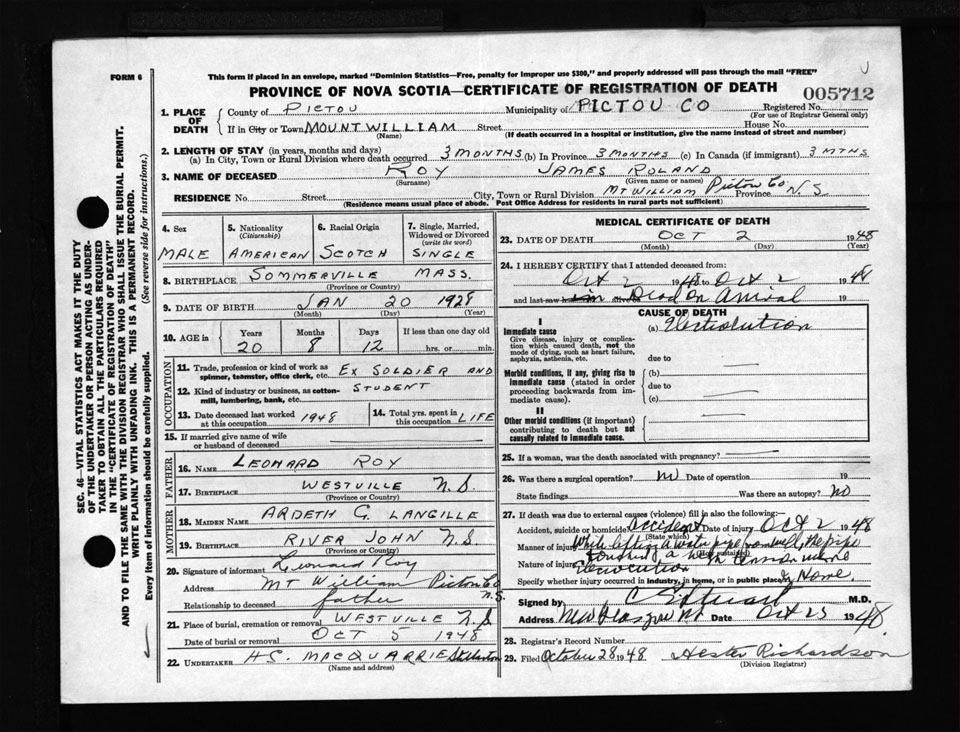 FORM 6
This form if placed in an envelope, marked "Dominion Statistics—Free, penalty for improper use $300," and properly addressed will pass through the mail "FREE"
PROVINCE OF NOVA SCOTIA—CERTIFICATE OF REGISTRATION OF DEATH
005712
1. PLACE OF DEATH
County of PICTOU Municipality of PICTOU CO Registered No.
(For use of Registrar General only)
If in City or Town MOUNT WILLIAM Street House No.
(Name) (If death occurred in a hospital or institution, give the name instead of street and number)
2. LENGTH OF STAY (in years, months and days)
(a) In City, Town or Rural Division where death occurred 3 MONTHS (b) In Province 3 MONTHS (c) In Canada (if immigrant) 3 MTHS
3. NAME OF DECEASED ROY JAMES ROLAND
(Surname) (Given name or names)
RESIDENCE No. Street City, Town or Rural Division MT WILLIAM Pictou Co Province N.S
(Residence means usual place of abode. Post Office Address for residents in rural parts not sufficient)
4. Sex
MALE
5. Nationality
(Citizenship)
AMERICAN
6. Racial Origin
SCOTCH
7. Single, Married, Widowed or Divorced
(write the word)
SINGLE
8. BIRTHPLACE SOMMERVILLE MASS.
(Province or Country)
9. DATE OF BIRTH JAN 20 1928
(Month) (Day) (Year)
10. AGE in
Years Months Days If less than one day old
20 8 12 hrs. or min.
OCCUPATION
11. Trade, profession or kind of work as spinner, teamster, office clerk, etc. EX SOLDIER AND
12. Kind of industry or business, as cotton-mill, lumbering, bank, etc. STUDENT
13. Date deceased last worked at this occupation 1948
14. Total yrs. spent in this occupation LIFE
15. If married give name of wife or husband of deceased
FATHER
16. NAME LEONARD ROY
17. BIRTHPLACE WESTVILLE N.S.
(Province or Country)
MOTHER
18. MAIDEN NAME ARDETH G. LANGILLE
19. BIRTHPLACE RIVER JOHN N.S.
(Province or Country)
20. Signature of informant Leonard Roy
Address MT William Pictou Co N.S.
Relationship to deceased father
21. Place of burial, cremation or removal WESTVILLE N.S
Date of burial or removal OCT 5 1948
22. UNDERTAKER H.S. MACQUARRIE Stellarton
(Name and address)
MEDICAL CERTIFICATE OF DEATH
23. DATE OF DEATH OCT 2 1948
(Month) (Day) (Year)
24. I HEREBY CERTIFY that I attended deceased from:
Oct 2 1948 to Oct 2 1948
and last saw Dead on Arrival 19
CAUSE OF DEATH
I
Immediate cause
Give disease, injury or complication which caused death, not the mode of dying, such as heart failure, asphyxia, asthenia, etc.
(a) Electrolution
due to
Morbid conditions, if any, giving rise to immediate cause (stated in order proceeding backwards from immediate cause).
(b)
due to
(c)
II
Other morbid conditions (if important) contributing to death but not causally related to immediate cause.
25. If a woman, was the death associated with pregnancy?
26. Was there a surgical operation? no Date of operation 19
State findings Was there an autopsy? No
27. If death due to external causes (violence) fill in also the following:—
Accident, suicide or homicide? Accident Date of injury Oct 2 1948
(State which)
Manner of injury While lifting a water pipe from well, the pipe
Nature of injury touched a high tension wire
Specify whether injury occurred in industry, in home, or in public place In Home.
Signed by M.D.
Address New Glasgow NS Date Oct 25 1948.
28. Registrar's Record Number
29. Filed October 28 1948 Hester Richardson
(Division Registrar)
SEC. 46—VITAL STATISTICS ACT MAKES IT THE DUTY OF THE UNDERTAKER OR PERSON ACTING AS UNDERTAKER TO OBTAIN ALL THE PARTICULARS REQUIRED IN THE "CERTIFICATE OF REGISTRATION OF DEATH"
AND TO FILE THE SAME WITH THE DIVISION REGISTRAR WHO SHALL ISSUE THE BURIAL PERMIT.
WRITE PLAINLY WITH UNFADING INK. THIS IS A PERMANENT RECORD.
Every item of information should be carefully supplied. (See reverse side for instructions.)